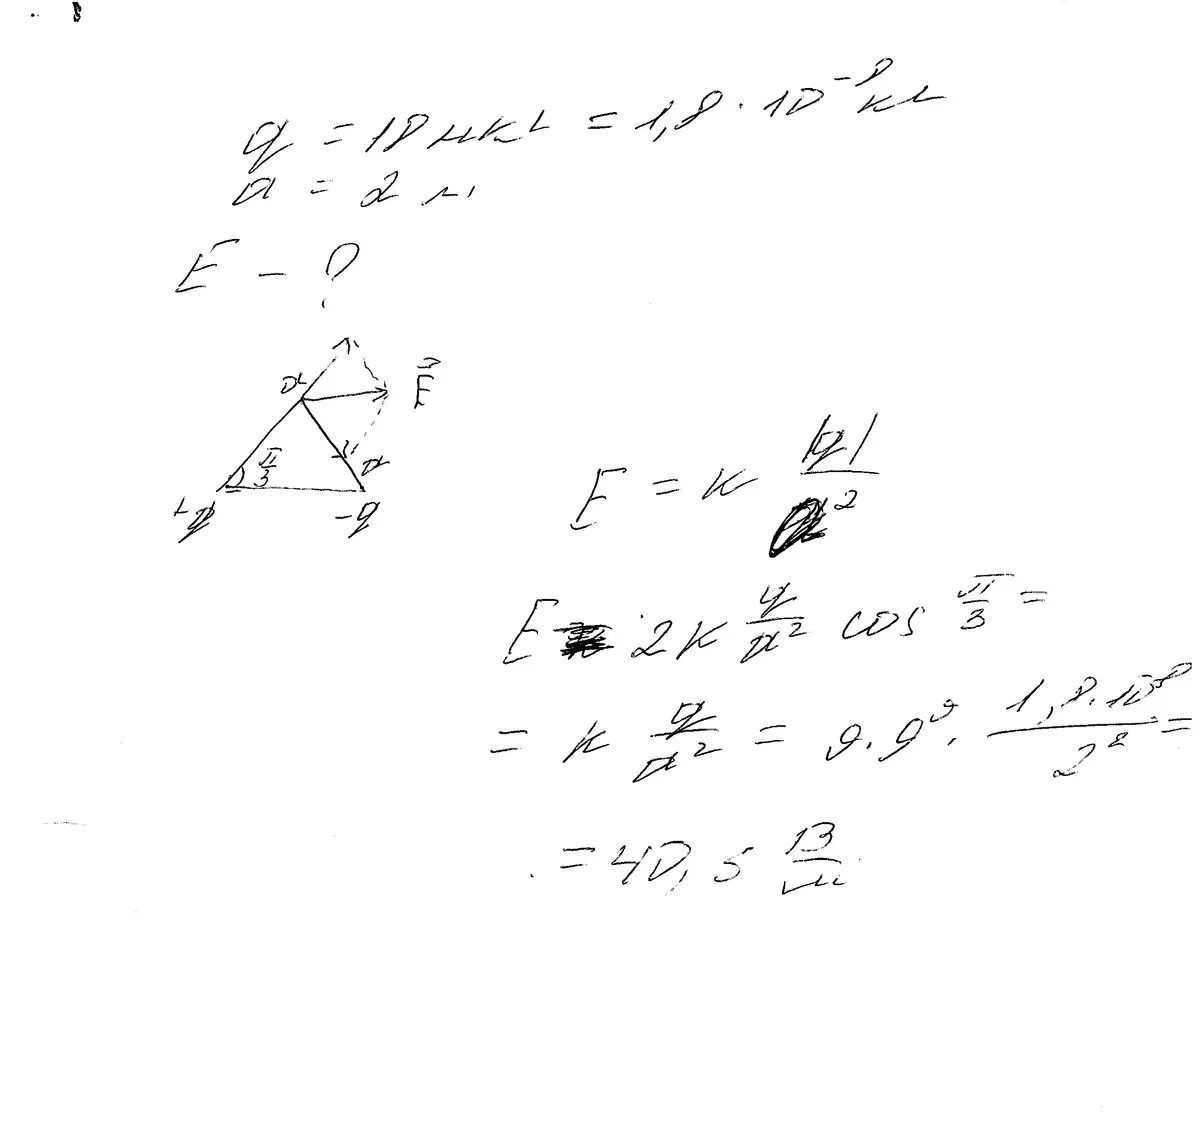 q = 18 мкКл = 1,8 · 10⁻⁸ Кл
a = 2 м
E - ?
a
E⃗
π/3
a
+q
-q
E = k |q|/a²
E = 2k q/a² cos π/3 =
= k q/a² = 9 · 9⁹ · 1,8 · 10⁸/2² =
= 40,5 В/м